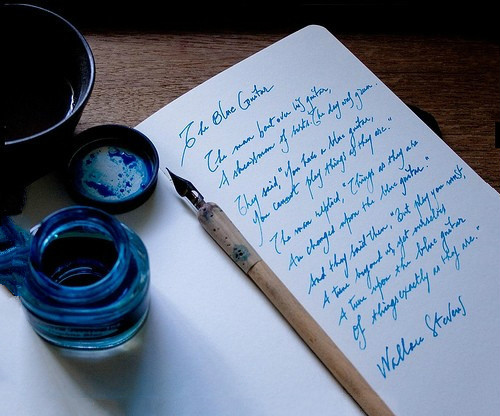 The Blue Guitar
The man bent over his guitar,
A shearsman of sorts. The day was green.
They said "You have a blue guitar,
You cannot play things as they are."
The man replied, "Things as they are
Are changed upon the blue guitar."
And they said then, "But play you must,
A tune beyond us, yet ourselves
A tune upon the blue guitar
Of things exactly as they are."
Wallace Stevens